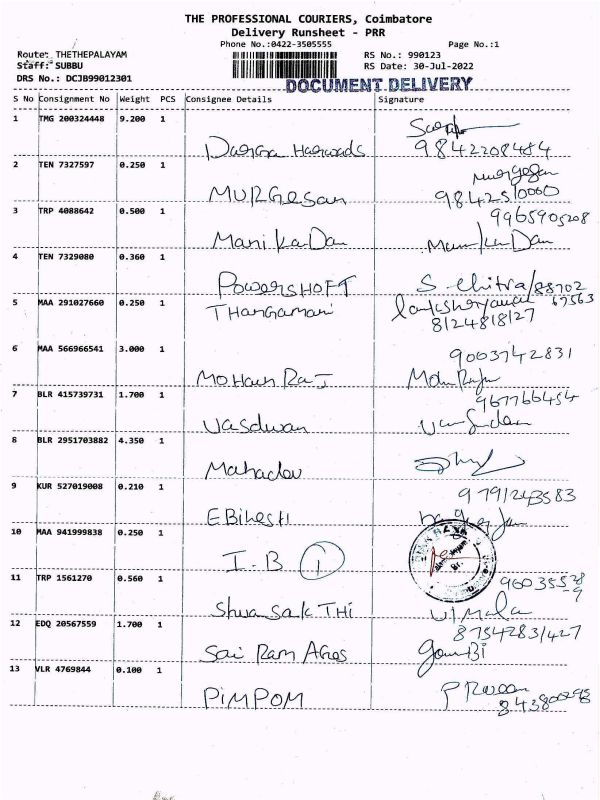 THE PROFESSIONAL COURIERS, Coimbatore
Delivery Runsheet - PRR
Phone No.:0422-3505555 Page No.:1
Route: THETHEPALAYAM RS No.: 990123
Staff: SUBBU RS Date: 30-Jul-2022
DRS No.: DCJB99012301
DOCUMENT DELIVERY
S No Consignment No Weight PCS Consignee Details Signature
1 TMG 200324448 9.200 1
Durga 9842208484
2 TEN 7327597 0.250 1 Murgesan
MURGESan 9842510060
3 TRP 4088642 0.500 1 9965905208
ManikanDan ManikanDan
4 TEN 7329080 0.360 1
PowerSHOFT S. Chitra/88702
67563
5 MAA 291027660 0.250 1
THangamani 8124818127
6 MAA 566966541 3.000 1 9003742831
MOHaun RaJ
7 BLR 415739731 1.700 1 967766454
Vasdwan
8 BLR 2951703882 4.350 1
Mahadev
9 KUR 527019008 0.210 1 9791243583
EBinesH
10 MAA 941999838 0.250 1
I.B 1
11 TRP 1561270 0.560 1
ShivasakTHi Vimala
12 EDQ 20567559 1.700 1 8754283427
Sai Ram Agies GowBi
13 VLR 4769844 0.100 1
PIMPOM